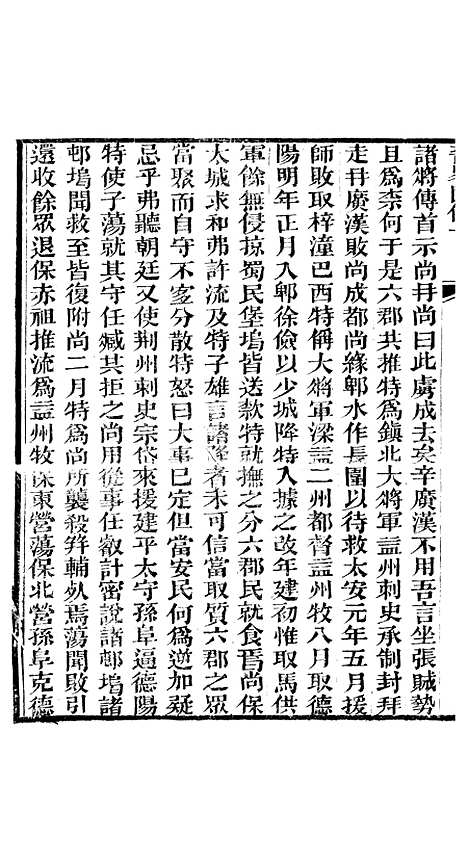 諸將傳首示尚冉尚曰此虜成去矣辛廣漢不用吾言坐張賊勢
且爲柰何于是六郡共推特爲鎭北大將軍益州刺史承制封拜
走冉廣漢敗尚成都尚緣郫水作長圍以待救太安元年五月援
師敗取梓潼巴西特稱大將軍梁益二州都督益州牧八月取德
陽明年正月入郫徐儉以少城降特入據之改年建初惟取馬供
軍餘無侵掠蜀民堡塢皆送款特就撫之分六郡民就食焉尚保
太城求和弗許流及特子雄言諸降者未可信當取質六郡之眾
當聚而自守不宜分散特怒曰大事已定但當安民何爲逆加疑
忌乎弗聽朝廷又使荆州刺史宗岱來援建平太守孫阜逼德陽
特使子蕩就其守任臧其拒之尚用從事任叡計密說諸邨塢諸
邨塢聞救至皆復附尚二月特爲尚所襲殺幷輔死焉蕩聞敗引
還收餘眾退保赤祖推流爲益州牧保東營蕩保北營孫阜克德